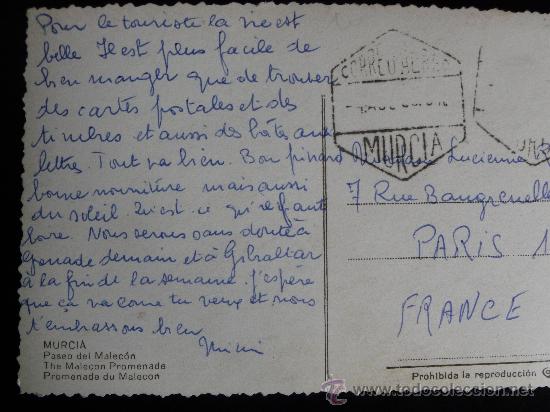 Pour le touriste la vie est
belle Il est plus facile de
bien manger que de trouver
des cartes postales et des
timbres et aussi des bôtes aux
lettres. Tout va bien. Bon pinard
bonne nourriture mais aussi
du soleil. Qu'est-ce qu'il faut
boire. Nous serons sans doute à
Grenade demain et à Gibraltar
à la fin de la semaine. J'espère
que ça va come tu veux et nous
t'embrassons bien
Mimi
CORREO AEREO
MURCIA
Lucienne
7 Rue
PARIS 1
FRANCE
MURCIA
Paseo del Malecón
The Malecon Promenade
Promenade du Malecon
Prohibida la reproducción
todocoleccion